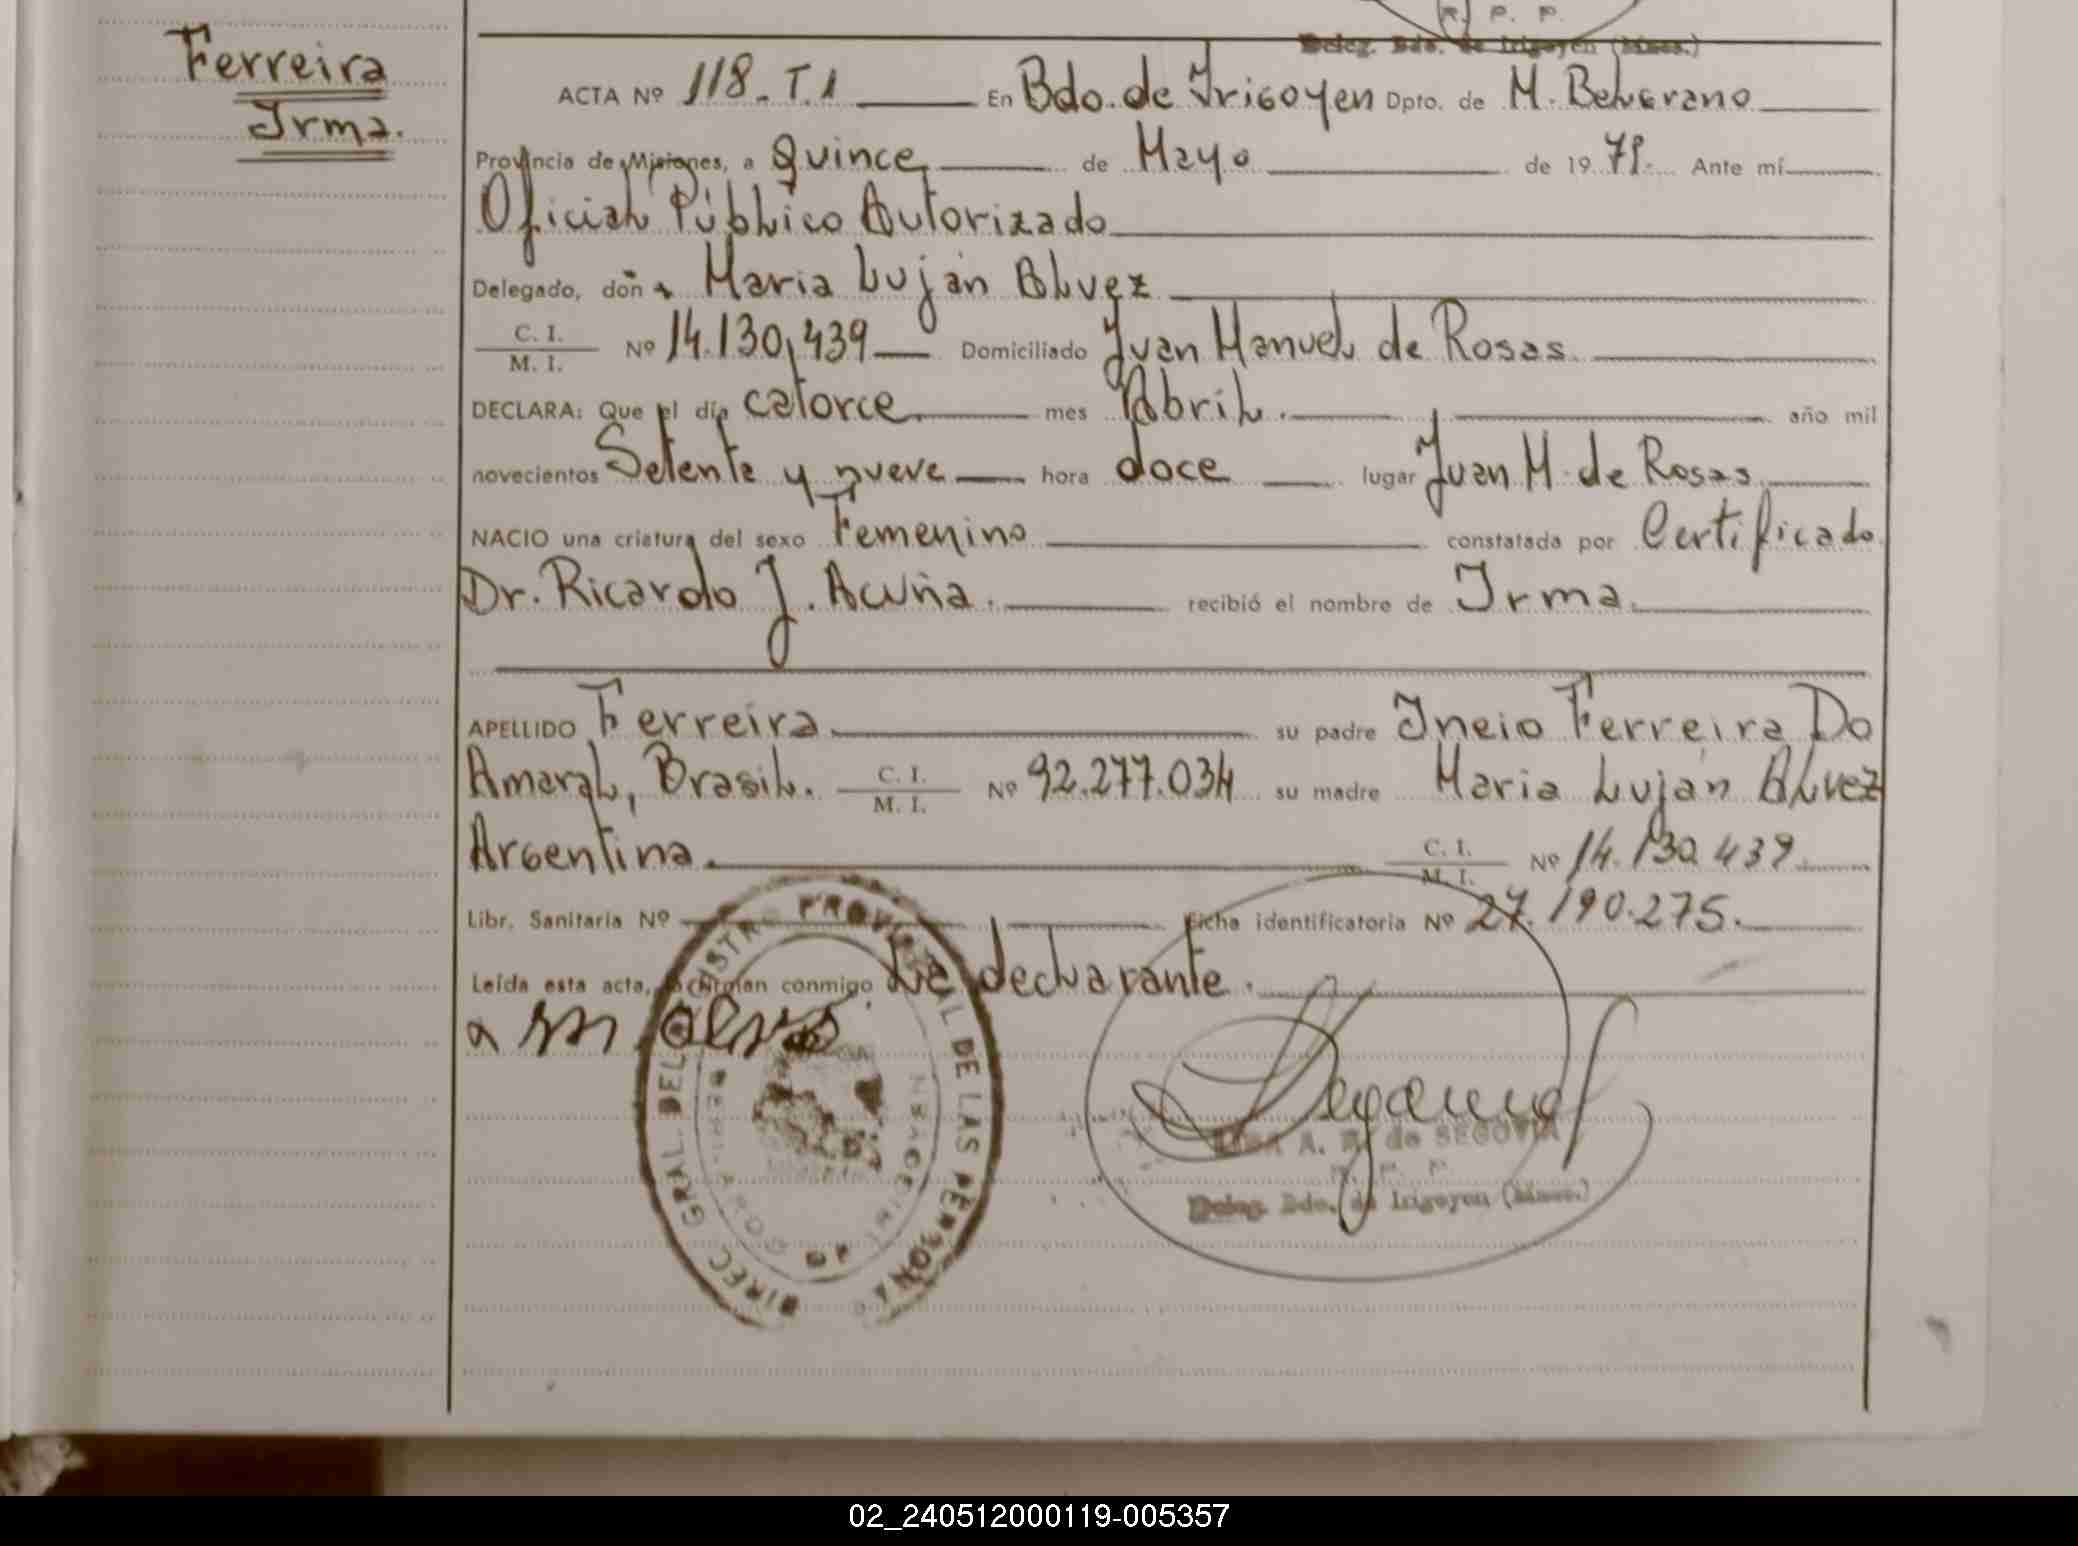 R. P. P.
Deleg. Bdo. de Irigoyen (Mnes.)
Ferreira
Irma.
ACTA Nº 118. T.1 En Bdo. de Irigoyen Dpto. de M. Belgrano
Provincia de Misiones, a Quince de Mayo de 19 79. Ante mí
Oficial Público Autorizado
Delegado, doña Maria Luján Alvez
C. I.
M. I.
Nº 14.130.439 Domiciliado Juan Manuel de Rosas
DECLARA: Que el día catorce mes Abril. año mil
novecientos Setenta y nueve hora doce lugar Juan M. de Rosas
NACIO una criatura del sexo Femenino constatada por Certificado
Dr. Ricardo J. Acuña. recibió el nombre de Irma.
APELLIDO Ferreira su padre Ineio Ferreira Do
Amaral, Brasil. C. I. M. I. Nº 92.277.034 su madre Maria Luján Alvez
Argentina. C. I. M. I. Nº 14.130.439
Libr. Sanitaria Nº Ficha identificatoria Nº 27.190.275.
Leída esta acta, la firman conmigo La declarante.
DIREC. GRAL. DEL REGISTRO PROVINCIAL DE LAS PERSONAS
A. R. de SEGOVIA
R. P. P.
Deleg. Bdo. de Irigoyen (Mnes.)
02_240512000119-005357